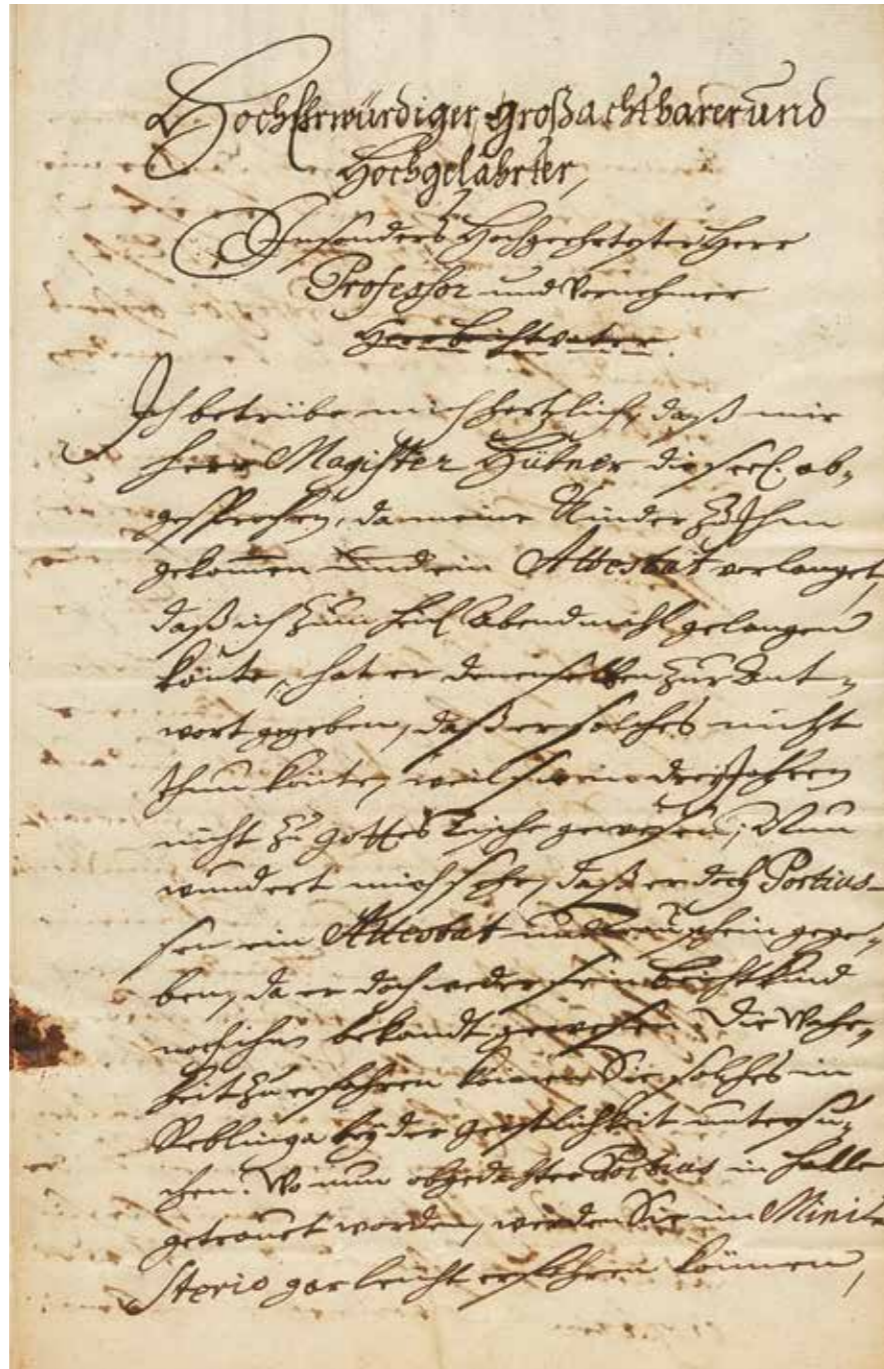 HochEhrwürdiger, Großachtbarer und
Hochgelahrter,
Insonders Hochgeehrtester Herr
Professor und Vornehmer
Herr Beichtvater.
Ich betrübe mich hertzlich, daß mir
Herr Magister Hübner die seel. ab-
gesprochen, da meine Kinder zu Ihm
gekom̄en und ein Attestat verlanget,
daß ich zum heil. Abendmahl gelangen
könte, hat er denenselben zur Ant-
wort gegeben, daß er solches nicht
thun könte, weil in drey Jahren
nicht zu Gottes Tische gewesen; Nun
wundert mich sehr, daß er doch Portius-
sen ein Attestat und Trauschein gege-
ben, da er doch weder sein Beichtkind
noch ihm bekandt gewesen. Die Wahr-
heit zu erfahren können Sie solches in
Reblinga bey der Geistlichkeit untersu-
chen. Wo nun obgedachter Portius in Halle
getrauet worden, werden Sie im Mini-
sterio gar leicht erfahren können,